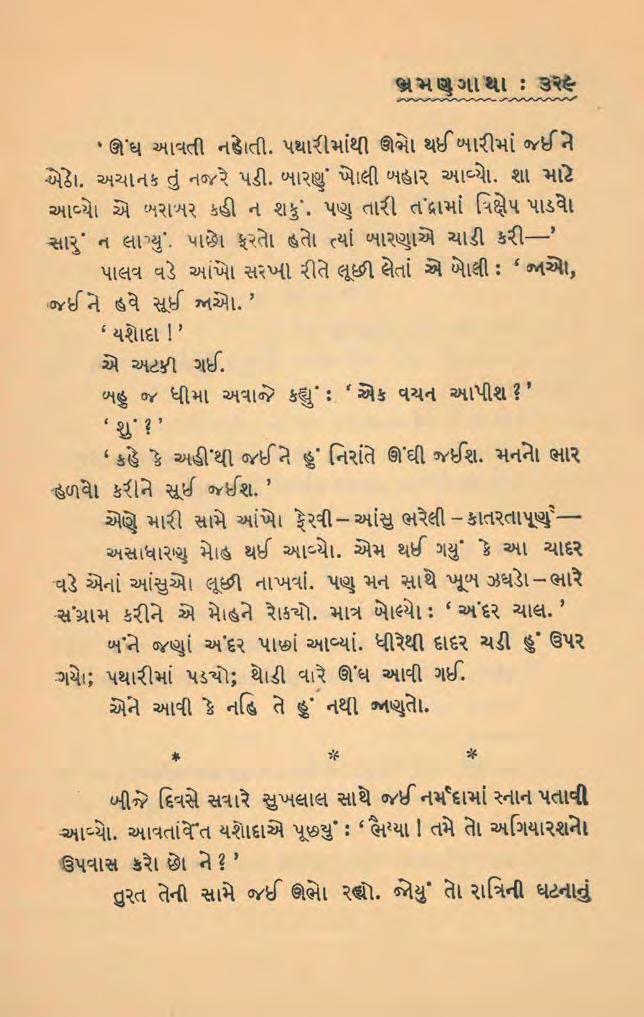 ભ્રમણગાથા : ૩૨૯
‘ ઊંઘ આવતી નહોતી. પથારીમાંથી ઊભો થઈ બારીમાં જઈને
બેઠો. અચાનક તું નજરે પડી. બારણું ખોલી બહાર આવ્યો. શા માટે
આવ્યો એ બરાબર કહી ન શકું. પણ તારી તંદ્રામાં વિક્ષેપ પાડવો
સારું ન લાગ્યું. પાછો ફરતો હતો ત્યાં બારણાએ ચાડી કરી—’
પાલવ વડે આંખો સરખી રીતે લૂછી લેતાં એ બોલી : ‘ જાઓ,
જઈને હવે સૂઈ જાઓ. ’
‘ યશોદા ! ’
એ અટકી ગઈ.
બહુ જ ધીમા અવાજે કહ્યું : ‘ એક વચન આપીશ ? ’
‘ શું ? ’
‘ કહે કે અહીંથી જઈને હું નિરાંતે ઊંઘી જઈશ. મનનો ભાર
હળવો કરીને સૂઈ જઈશ. ’
એણે મારી સામે આંખો ફેરવી – આંસુ ભરેલી – કાતરતાપૂર્ણ —
અસાધારણ મોહ થઈ આવ્યો. એમ થઈ ગયું કે આ ચાદર
વડે એનાં આંસુઓ લૂછી નાખવાં. પણ મન સાથે ખૂબ ઝઘડો – ભારે
સંગ્રામ કરીને એ મોહને રોક્યો. માત્ર બોલ્યો : ‘ અંદર ચાલ. ’
બંને જણાં અંદર પાછાં આવ્યાં. ધીરેથી દાદર ચડી હું ઉપર
ગયો; પથારીમાં પડ્યો; થોડી વારે ઊંઘ આવી ગઈ.
એને આવી કે નહિ તે હું નથી જાણતો.
* * *
બીજે દિવસે સવારે સુખલાલ સાથે જઈ નર્મદામાં સ્નાન પતાવી
આવ્યો. આવતાંવેંત યશોદાએ પૂછ્યું : ‘ ભૈય્યા ! તમે તો અગિયારશનો
ઉપવાસ કરો છો ને ? ’
તુરત તેની સામે જઈ ઊભો રહ્યો. જોયું તો રાત્રિની ઘટનાનું